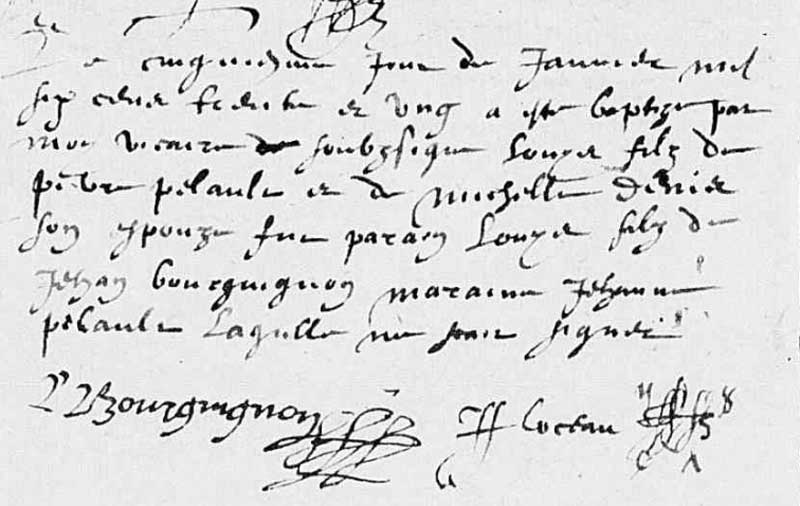 Le cinquiesme jour de Janvier mil
six cens trente et ung a este baptize par
moy vicaire soubzsigne Louys filz de
pierre pelault et de Michelle Denis
son espouze fut parain Louys filz de
Jehan bourguignon maraine Jehanne
pelault laquelle ne scait signer
L Bourguignon
Loceau